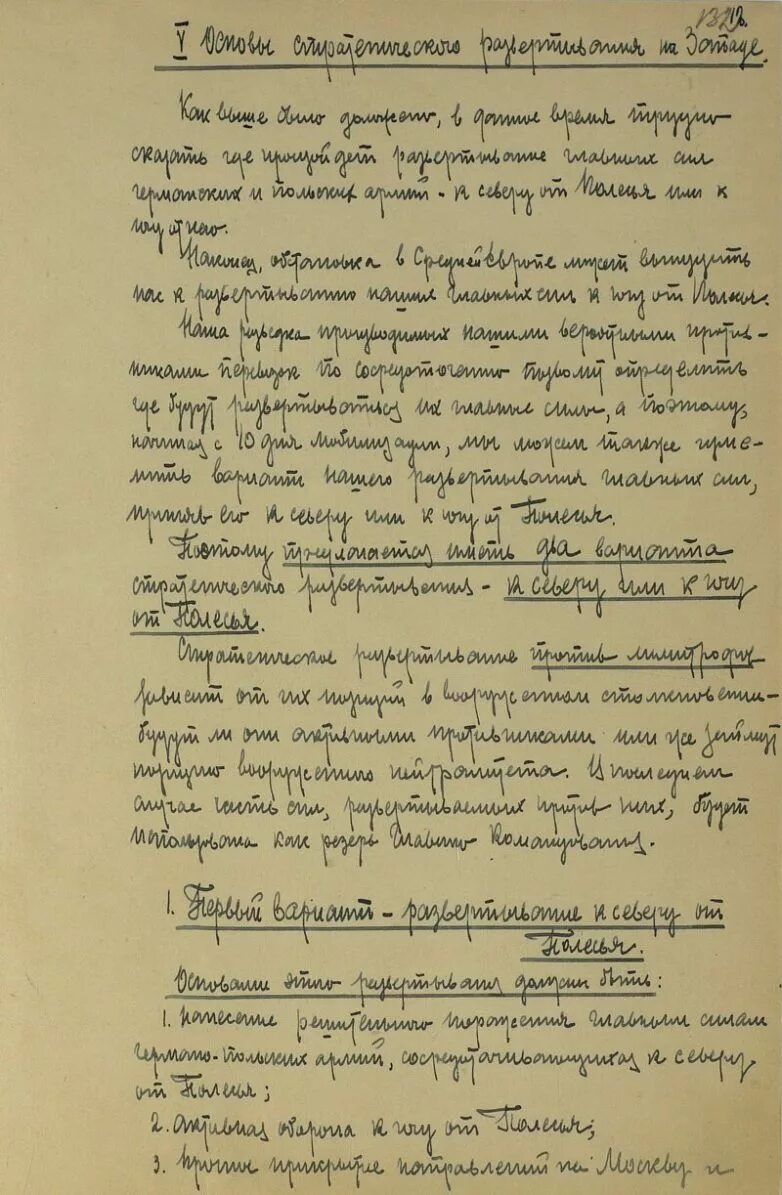 V Основы стратегического развертывания на Западе.
Как выше было доложено, в данное время трудно
сказать где произойдет развертывание главных сил
германских и польских армий - к северу от Полесья или к
югу от него.
Наконец, обстановка в Средней Европе может вынудить
нас к развертыванию наших главных сил к югу от Полесья.
Наша разведка производимых нашими вероятными против-
никами перевозок по сосредоточению позволит определить
где будут развертываться их главные силы, а поэтому,
начиная с 10 дня мобилизации, мы можем также изме-
нить вариант нашего развертывания главных сил,
приняв его к северу или к югу от Полесья.
Поэтому предлагается иметь два варианта
стратегического развертывания - к северу или к югу
от Полесья.
Стратегическое развертывание против лимитрофов
зависит от их позиций в вооруженном столкновении -
будут ли они активными противниками или же займут
позицию вооруженного нейтралитета. В последнем
случае часть сил, развертываемых против них, будет
использована как резерв Главного Командования.
1. Первый вариант - развертывание к северу от
Полесья.
Основами этого развертывания должны быть:
1. Нанесение решительного поражения главным силам
германо-польских армий, сосредотачивающихся к северу
от Полесья;
2. Активная оборона к югу от Полесья;
3. Прочное прикрытие направлений на Москву и